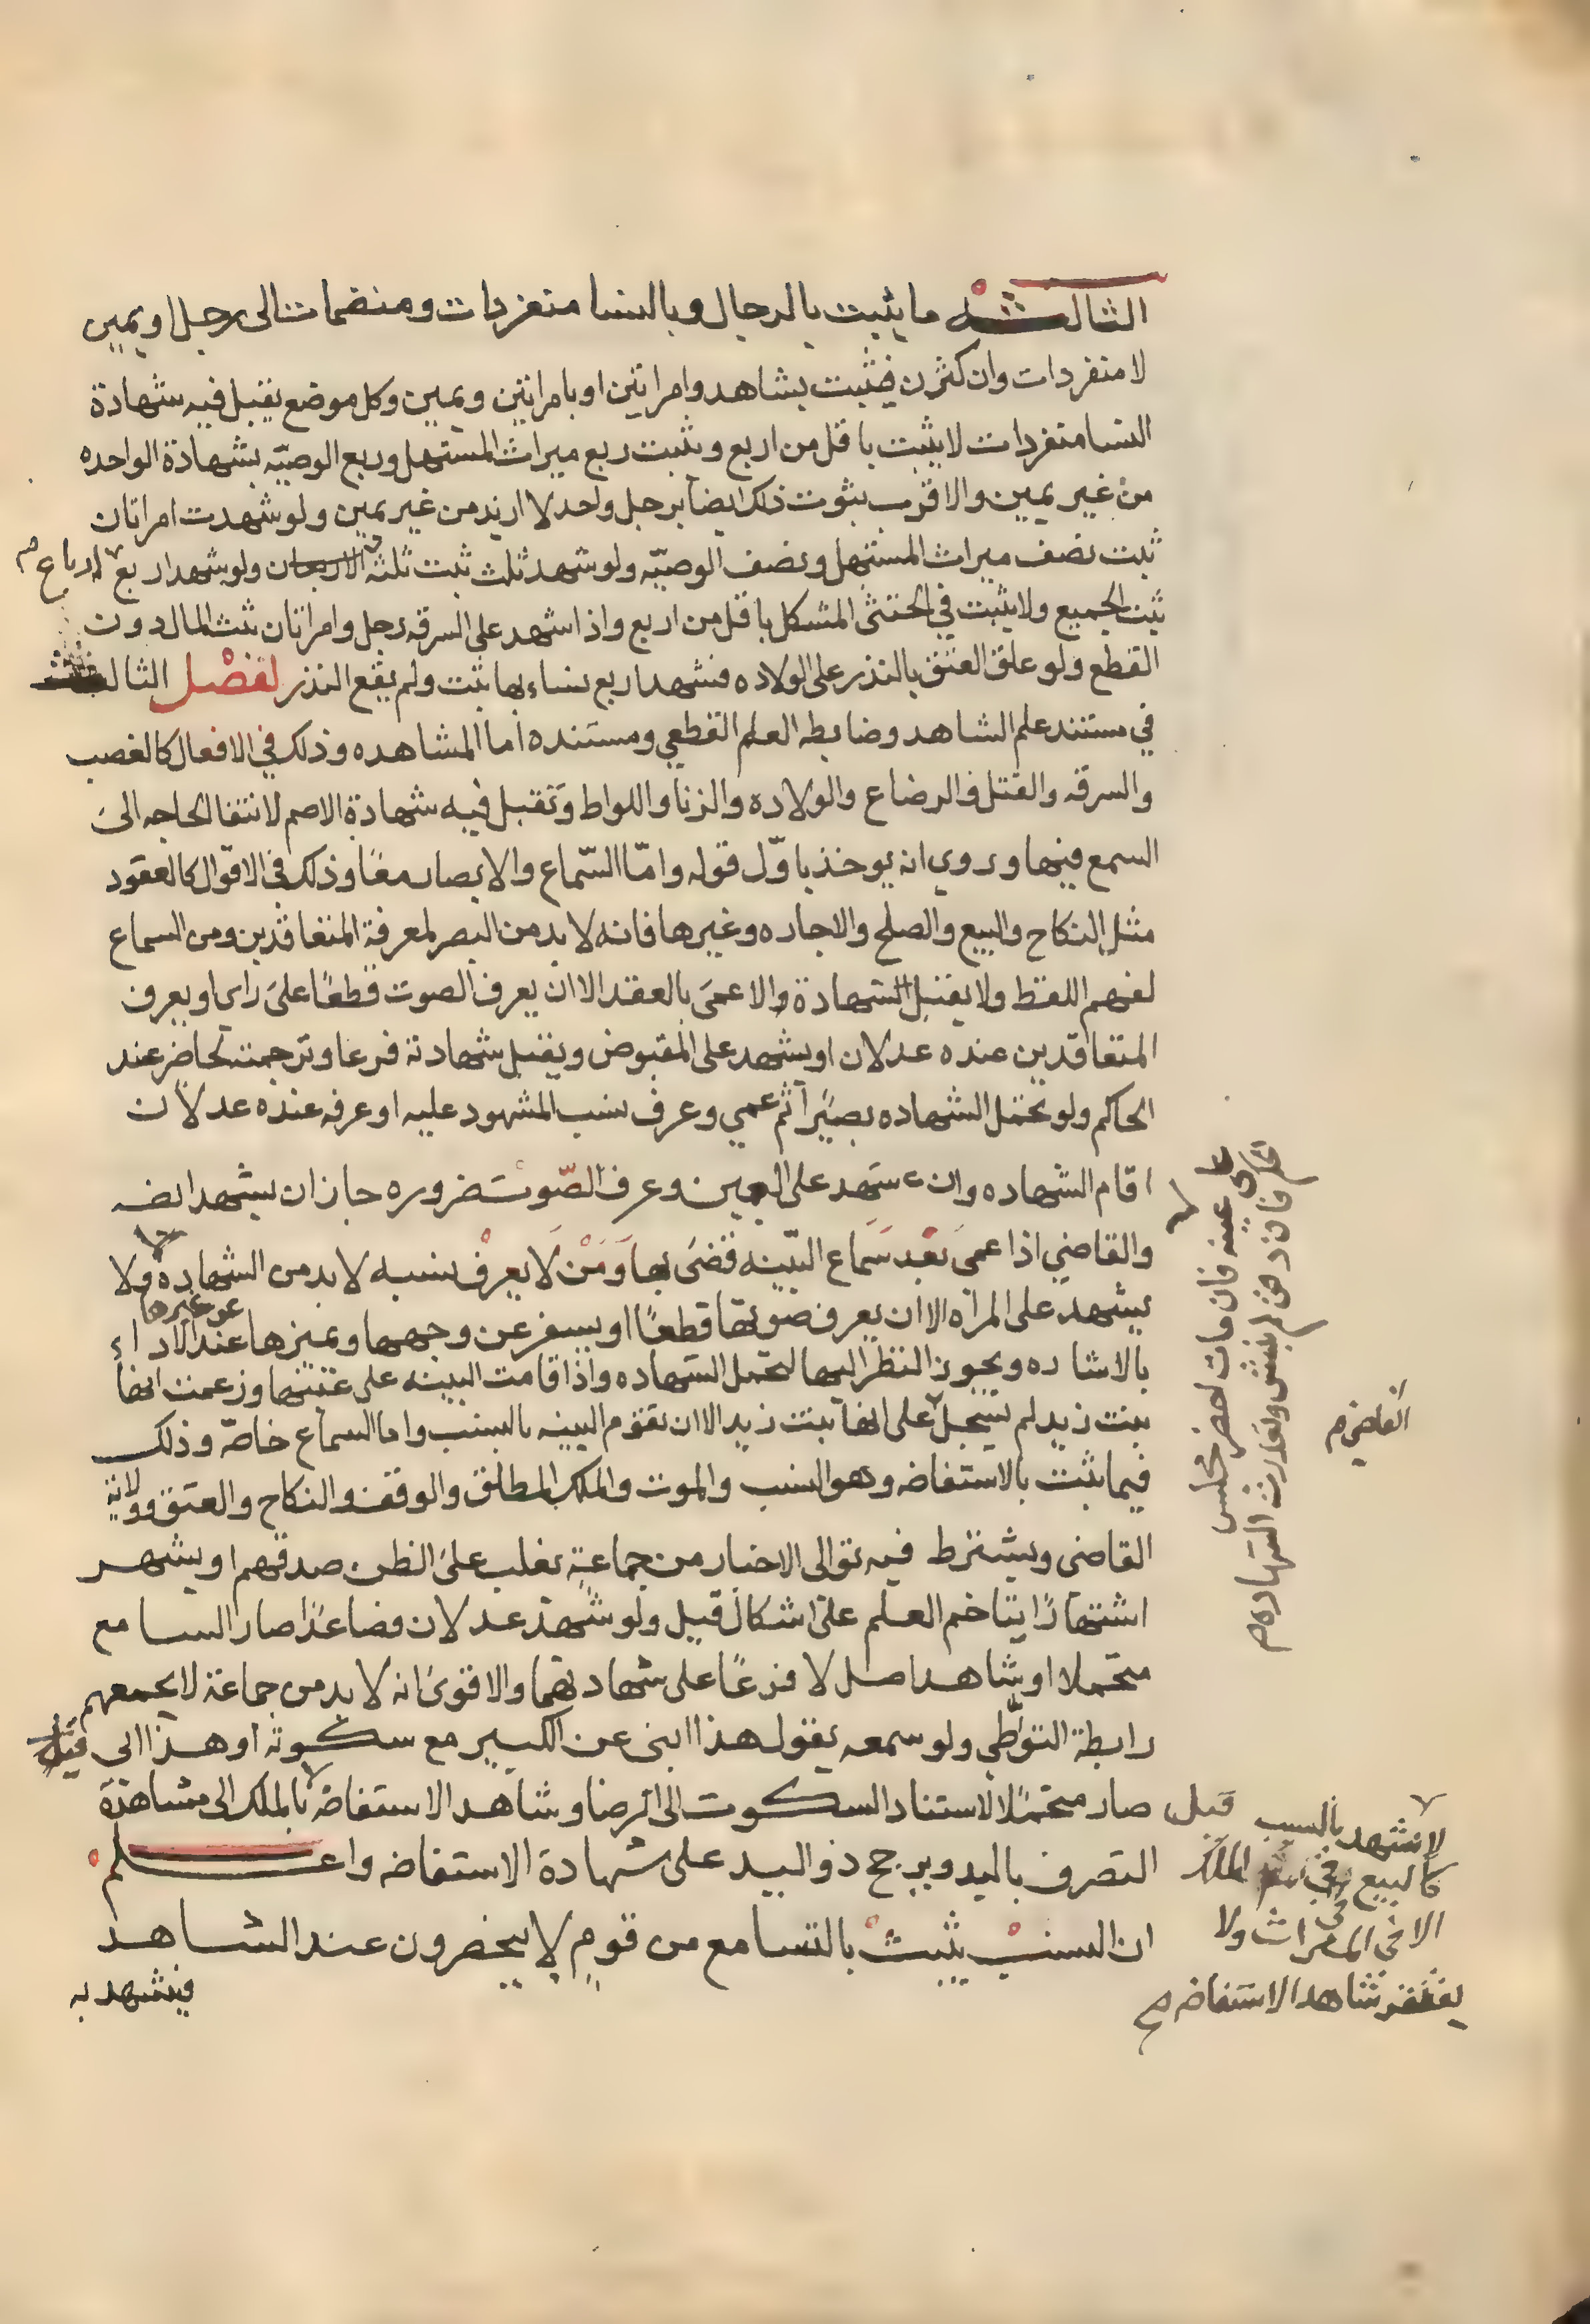 الثالثه ما يثبت بالرجال وبالنسا منفردات ومنضمات الى رجل او يمين
لا منفردات وان كثرن فيثبت بشاهد وامراتين او بامراتين ويمين وكل موضع يقبل فيه شهادة
النسا منفردات لا يثبت باقل من اربع ويثبت ربع ميراث المستهل وربع الوصيّه بشهادة الواحده
من غير يمين والاقرب بثوت ذلك ايضاً برجل واحد لا ازيد من غير يمين ولو شهدت امراتان
ثبت نصف ميراث المستهل ونصف الوصيّه ولو شهد ثلث ثبت ثلثه ولو شهد اربع
ارباع
ثبت الجميع ولا يثبت في الخنثى المشكل باقل من اربع واذا شهد على السرقه رجل وامراتان ثبت المال دون
القطع ولو علق العتق بالنذر على الولاده فشهد اربع نساء بها ثبت ولم يقع النذر لفصل الثالث
في مستند علم الشاهد وضابطه العلم القطعي ومستنده اما المشاهده وذلك في الافعال كالغصب
والسرقه والقتل والرضاع والولاده والزنا واللواط وتقبل فيه شهادة الاصم لانتفا الحاجه الى
السمع فيها وروي انه يوخذ باوّل قوله وامّا السّماع والابصار معًا وذلك في الاقوال كالعقود
مثل النكاح والبيع والصلح والاجاره وغيرها فانه لا بد من البصر لمعرفة المتعاقدين ومن السماع
لفهم اللفظ ولا يقبل الشهادة والاعمى بالعقد الا ان يعرف الصوت قطعًا على راى او يعرف
المتعاقدين عنده عدلان او يشهد على المقبوض ويقبل شهادته فرعا وترجمته لحاضر عند
الحاكم ولو تحمّل الشهاده بصيرًا ثم عمي وعرف نسب المشهود عليه او عرفه عنده عدلان
اقام الشهاده وان شهد على العين وعرف الصّوت ضروره جاز ان يشهد ايضا
والقاضي اذا عمى بعد سماع البيّنه قضى بها ومن لا يعرف نسبه لا بد من الشهاده ولا
على عينه فان مات احضر مجلس
الحكم فان دفن لم ينبش وتعذرت الشهاده
القاضي
يشهد على المراه الا ان يعرف صوتها قطعًا او يسفر عن وجهها ويميزها عند الاداء
عن غيرها
بالاشاره ويجوز النظر اليها لتحمل الشهاده واذا قامت البينه على عينها وزعمت انها
بنت زيد لم يسجل على انها بنت زيد الا ان تقوم البينه بالنسب واما السماع خاصّه وذلك
فيما يثبت بالاستفاضه وهو النسب والموت والملك المطلق والوقف والنكاح والعتق وولاية
القاضى ويشترط فيه توالى الاخبار من جماعةٍ يغلب على الظن صدقهم او يشهر
اشتهارًا يتاخم العلم على اشكال قيل ولو شهد عدلان فصاعدًا صار السامع
متحملا او شاهد اصل لا فرعًا على شهادتهما والاقوى انه لا بد من جماعة لا يجمعهم
رابطة التوطّي ولو سمعه يقول هذا ابنى عن الكبير مع سكوته او هذا ابى قيل
صار متحمّلا لاستناد السكوت الى الرضا وشاهد الاستفاضه بالملك الى مشاهدة
قيل
لا يشهد بالسبب
كالبيع
الا في الميراث ولا
يفتقر شاهد الاستفاضه
التصرف باليد ويرجح ذو اليد على شهادة الاستفاضه واعلم
ان النسب يثبت بالتسامع من قومٍ لا ينحصرون عند الشاهد
فيشهد به